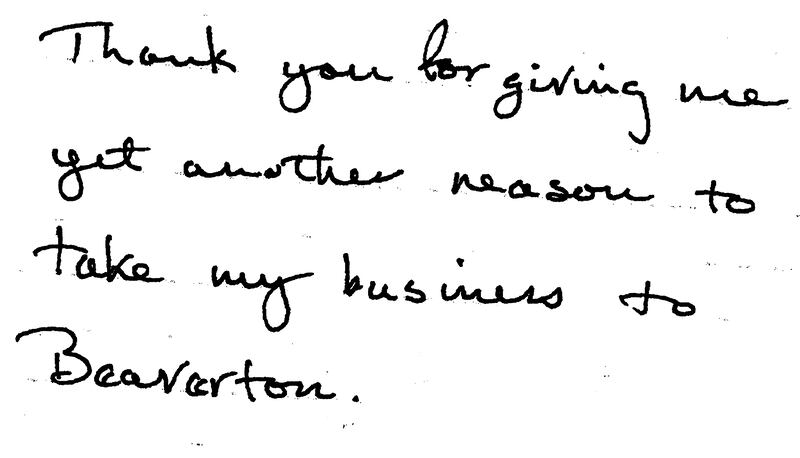 Thank you for giving me
yet another reason to
take my business to
Beaverton.